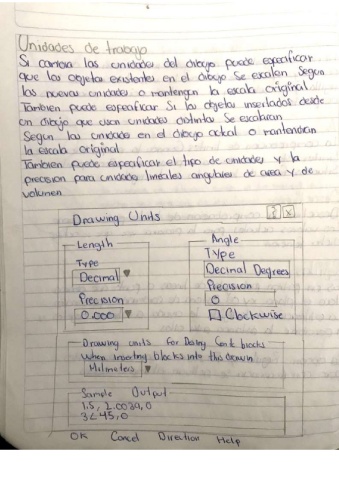 Unidades de trabajo
Si cambia las unidades del dibujo puede especificar
que los objetos existentes en el dibujo se escalen según
las nuevas unidades o mantengan la escala original
Tambien puede especificar si los objetos insertados desde
un dibujo que usan unidades distintas se escalaran
Segun las unidades en el dibujo actual o mantendran
la escala original
Tambien puede especificar el tipo de unidades y la
precision para unidades lineales angulares de area y de
volumen
Drawing Units ? x
Length
Type
Decimal ▼
Precision
0.000 ▼
Angle
Type
Decimal Degrees
Precision
0
Clockwise
Drawing units for
blocks
When inserting blocks into the
Milimeters ▼
Sample Output
1.5, 2.0039, 0
3<45, 0
OK Cancel Direction Help